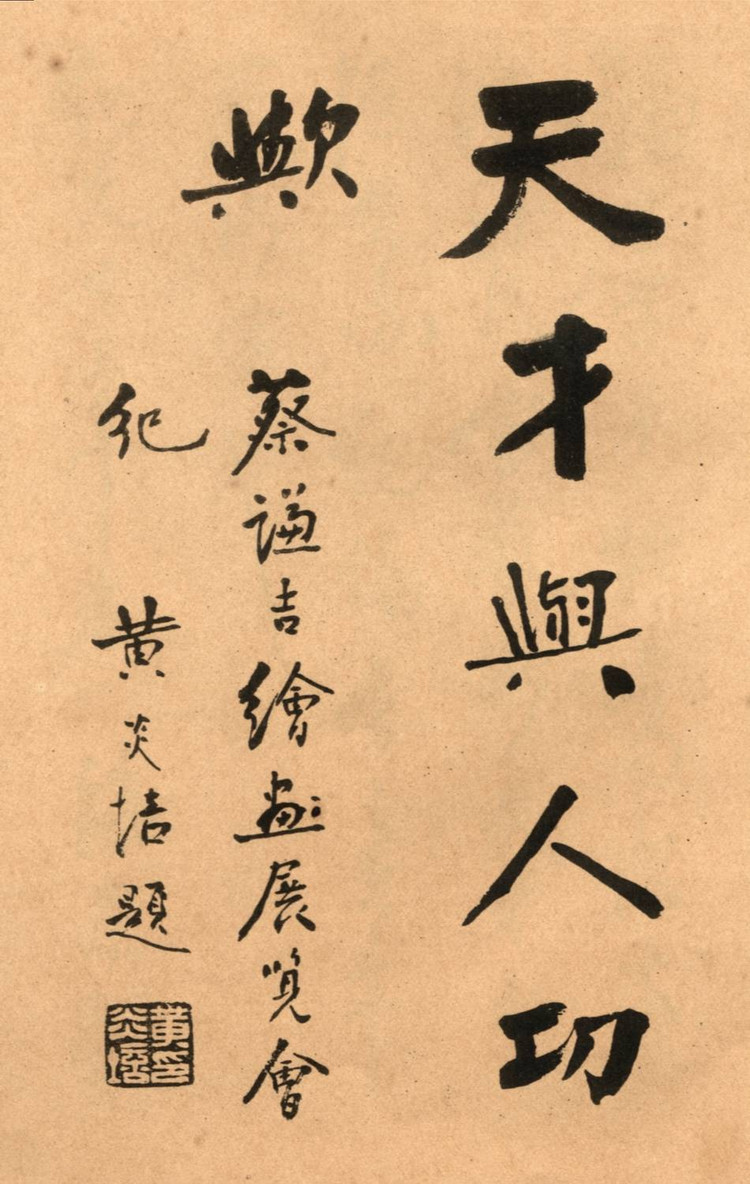 天才與人功
歟
蔡謙吉繪畫展覽會
紀 黃炎培題
黃炎培印